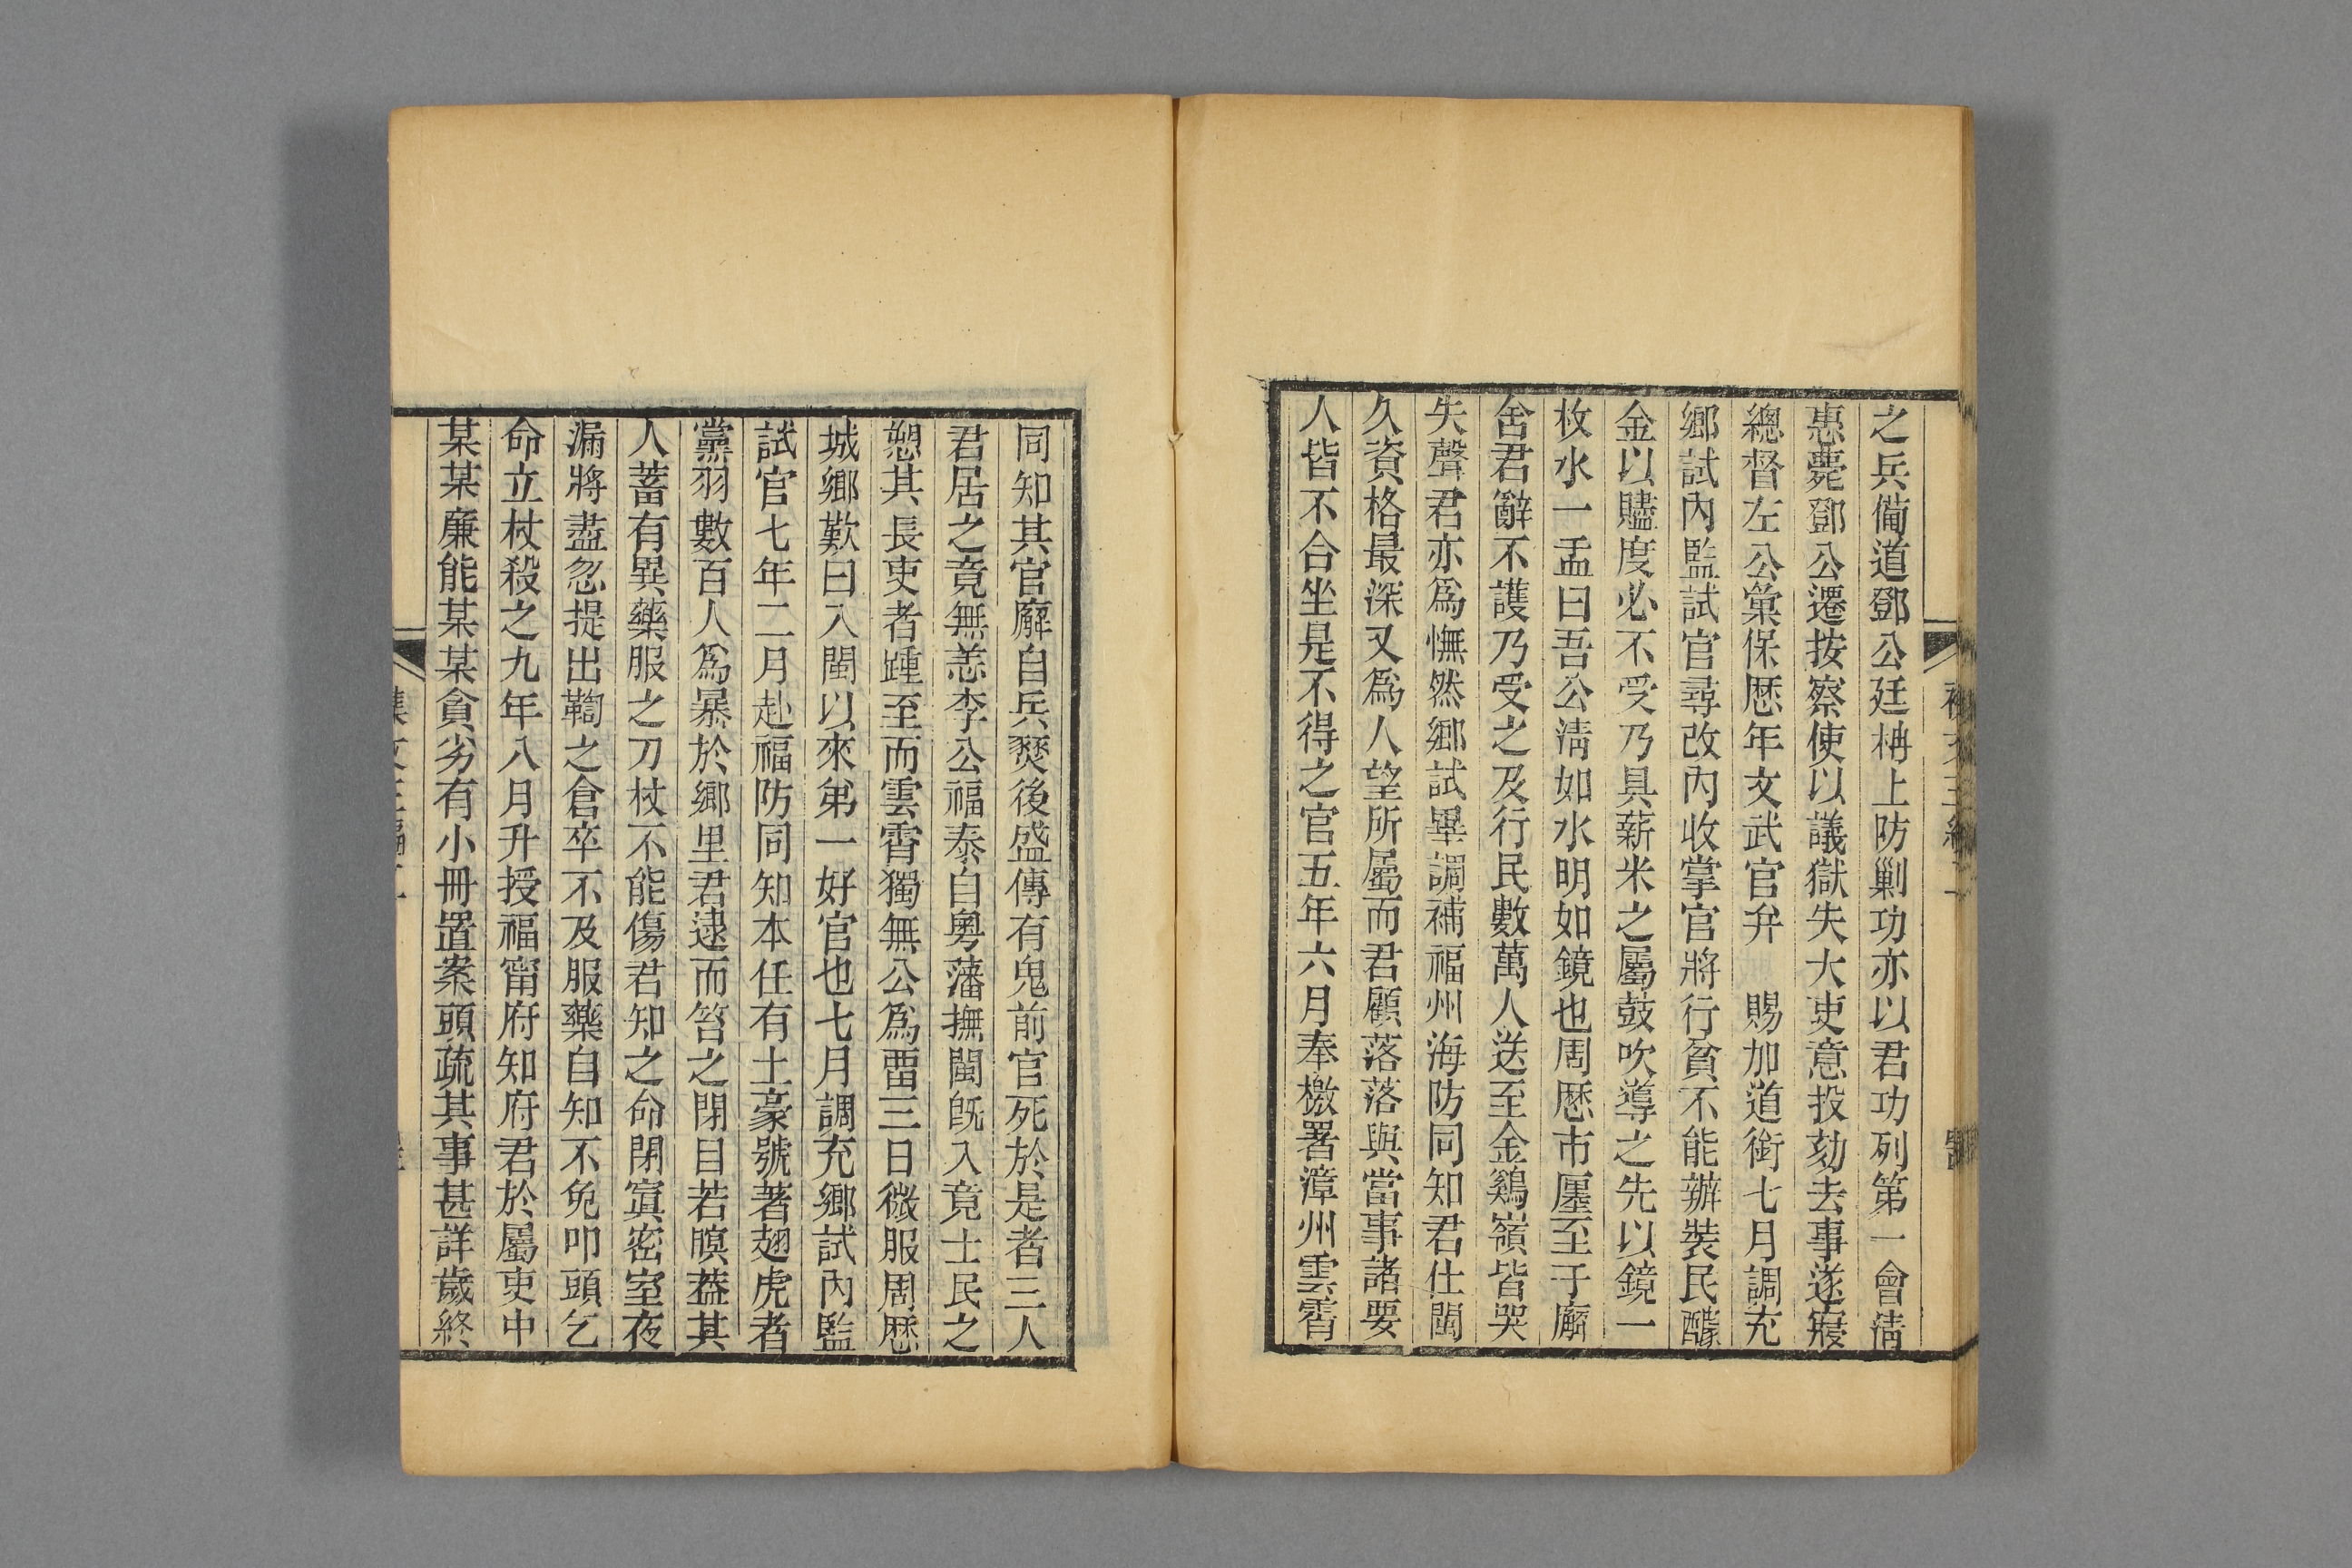 之兵備道鄧公廷枏上防剿功亦以君功列第一會清
惠薨鄧公遷按察使以議獄失大吏意投劾去事遂寢
總督左公彙保歷年文武官弁　賜加道銜七月調充
鄉試內監試官尋改內收掌官將行貧不能辦裝民醵
金以贐度必不受乃具薪米之屬鼓吹導之先以鏡一
枚水一盂曰吾公淸如水明如鏡也周歷市廛至于廨
舍君辭不護乃受之及行民數萬人送至金鷄嶺皆哭
失聲君亦爲憮然鄉試畢調補福州海防同知君仕閩
久資格最深又爲人望所屬而君顧落落與當事諸要
人皆不合坐是不得之官五年六月奉檄署漳州雲霄
同知其官廨自兵燹後盛傳有鬼前官死於是者三人
君居之竟無恙李公福泰自粵藩撫閩旣入竟士民之
愬其長吏者踵至而雲霄獨無公爲畱三日微服周歷
城鄉歎曰入閩以來弟一好官也七月調充鄉試內監
試官七年二月赴福防同知本任有土豪號著翅虎者
黨羽數百人爲暴於鄉里君逮而笞之閉目若瞑葢其
人蓄有異藥服之刀杖不能傷君知之命閉寘密室夜
漏將盡忽提出鞫之倉卒不及服藥自知不免叩頭乞
命立杖殺之九年八月升授福甯府知府君於屬吏中
某某廉能某某貪劣有小冊置案頭疏其事甚詳歲終